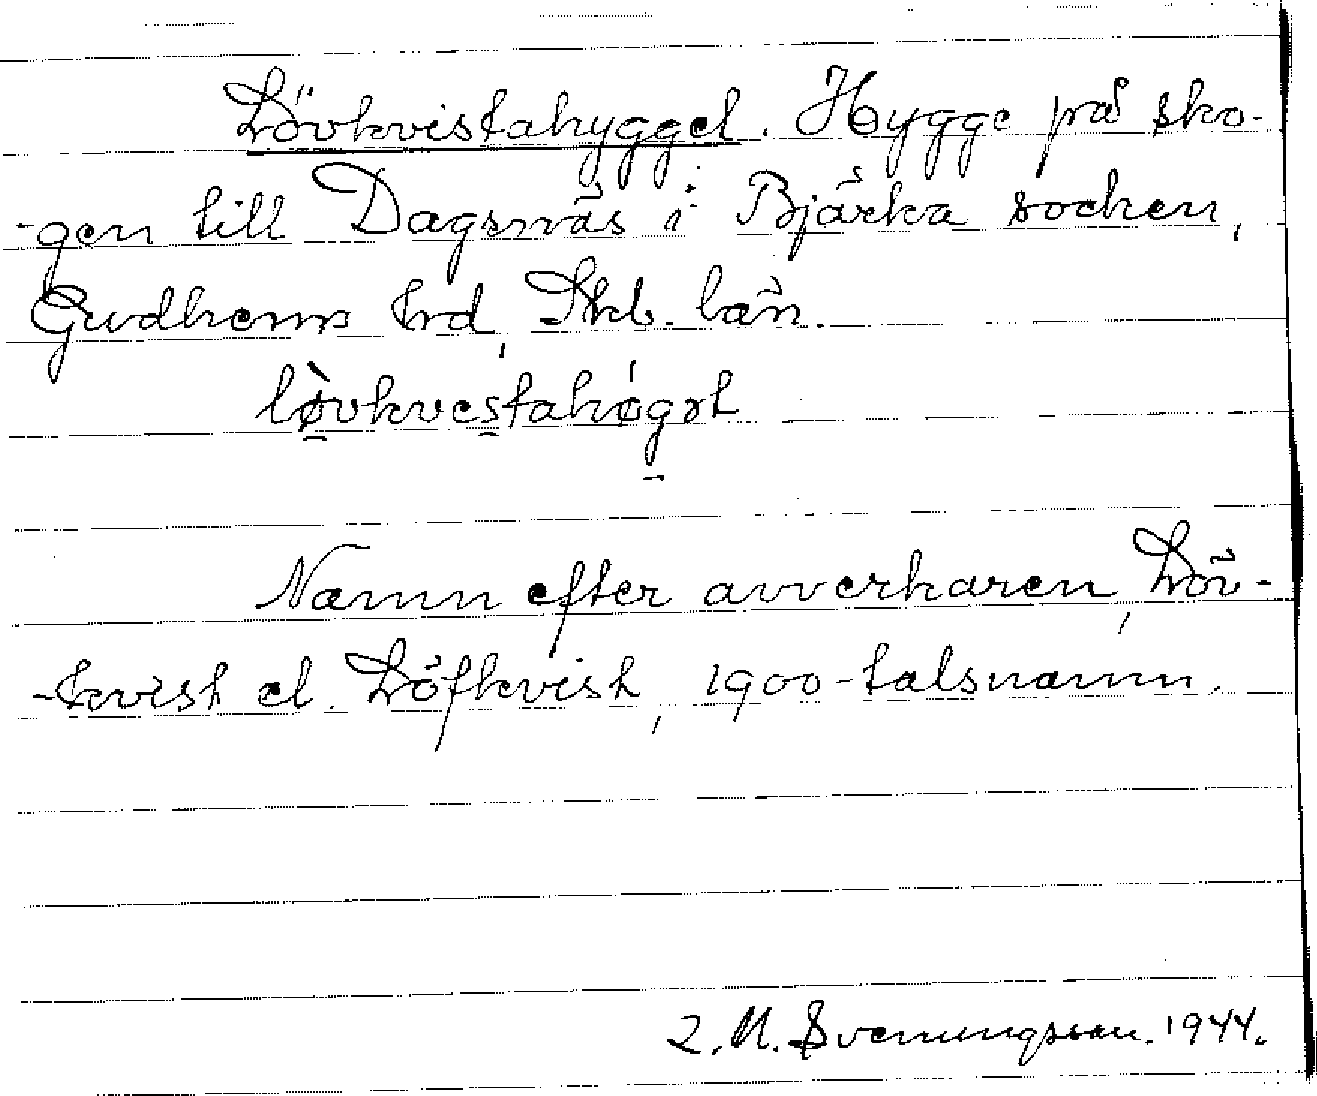 Lövkvistahygget. Hygge på sko-
-gen till Dagsnäs i Bjärka socken,
Gudhems hrd, Skb. län.
lø̀vkvestahǿgət
Namn efter avverkaren, Löv-
-kvist el. Löfkvist, 1900-talsnamn.
L. M. Svenungsson. 1944.